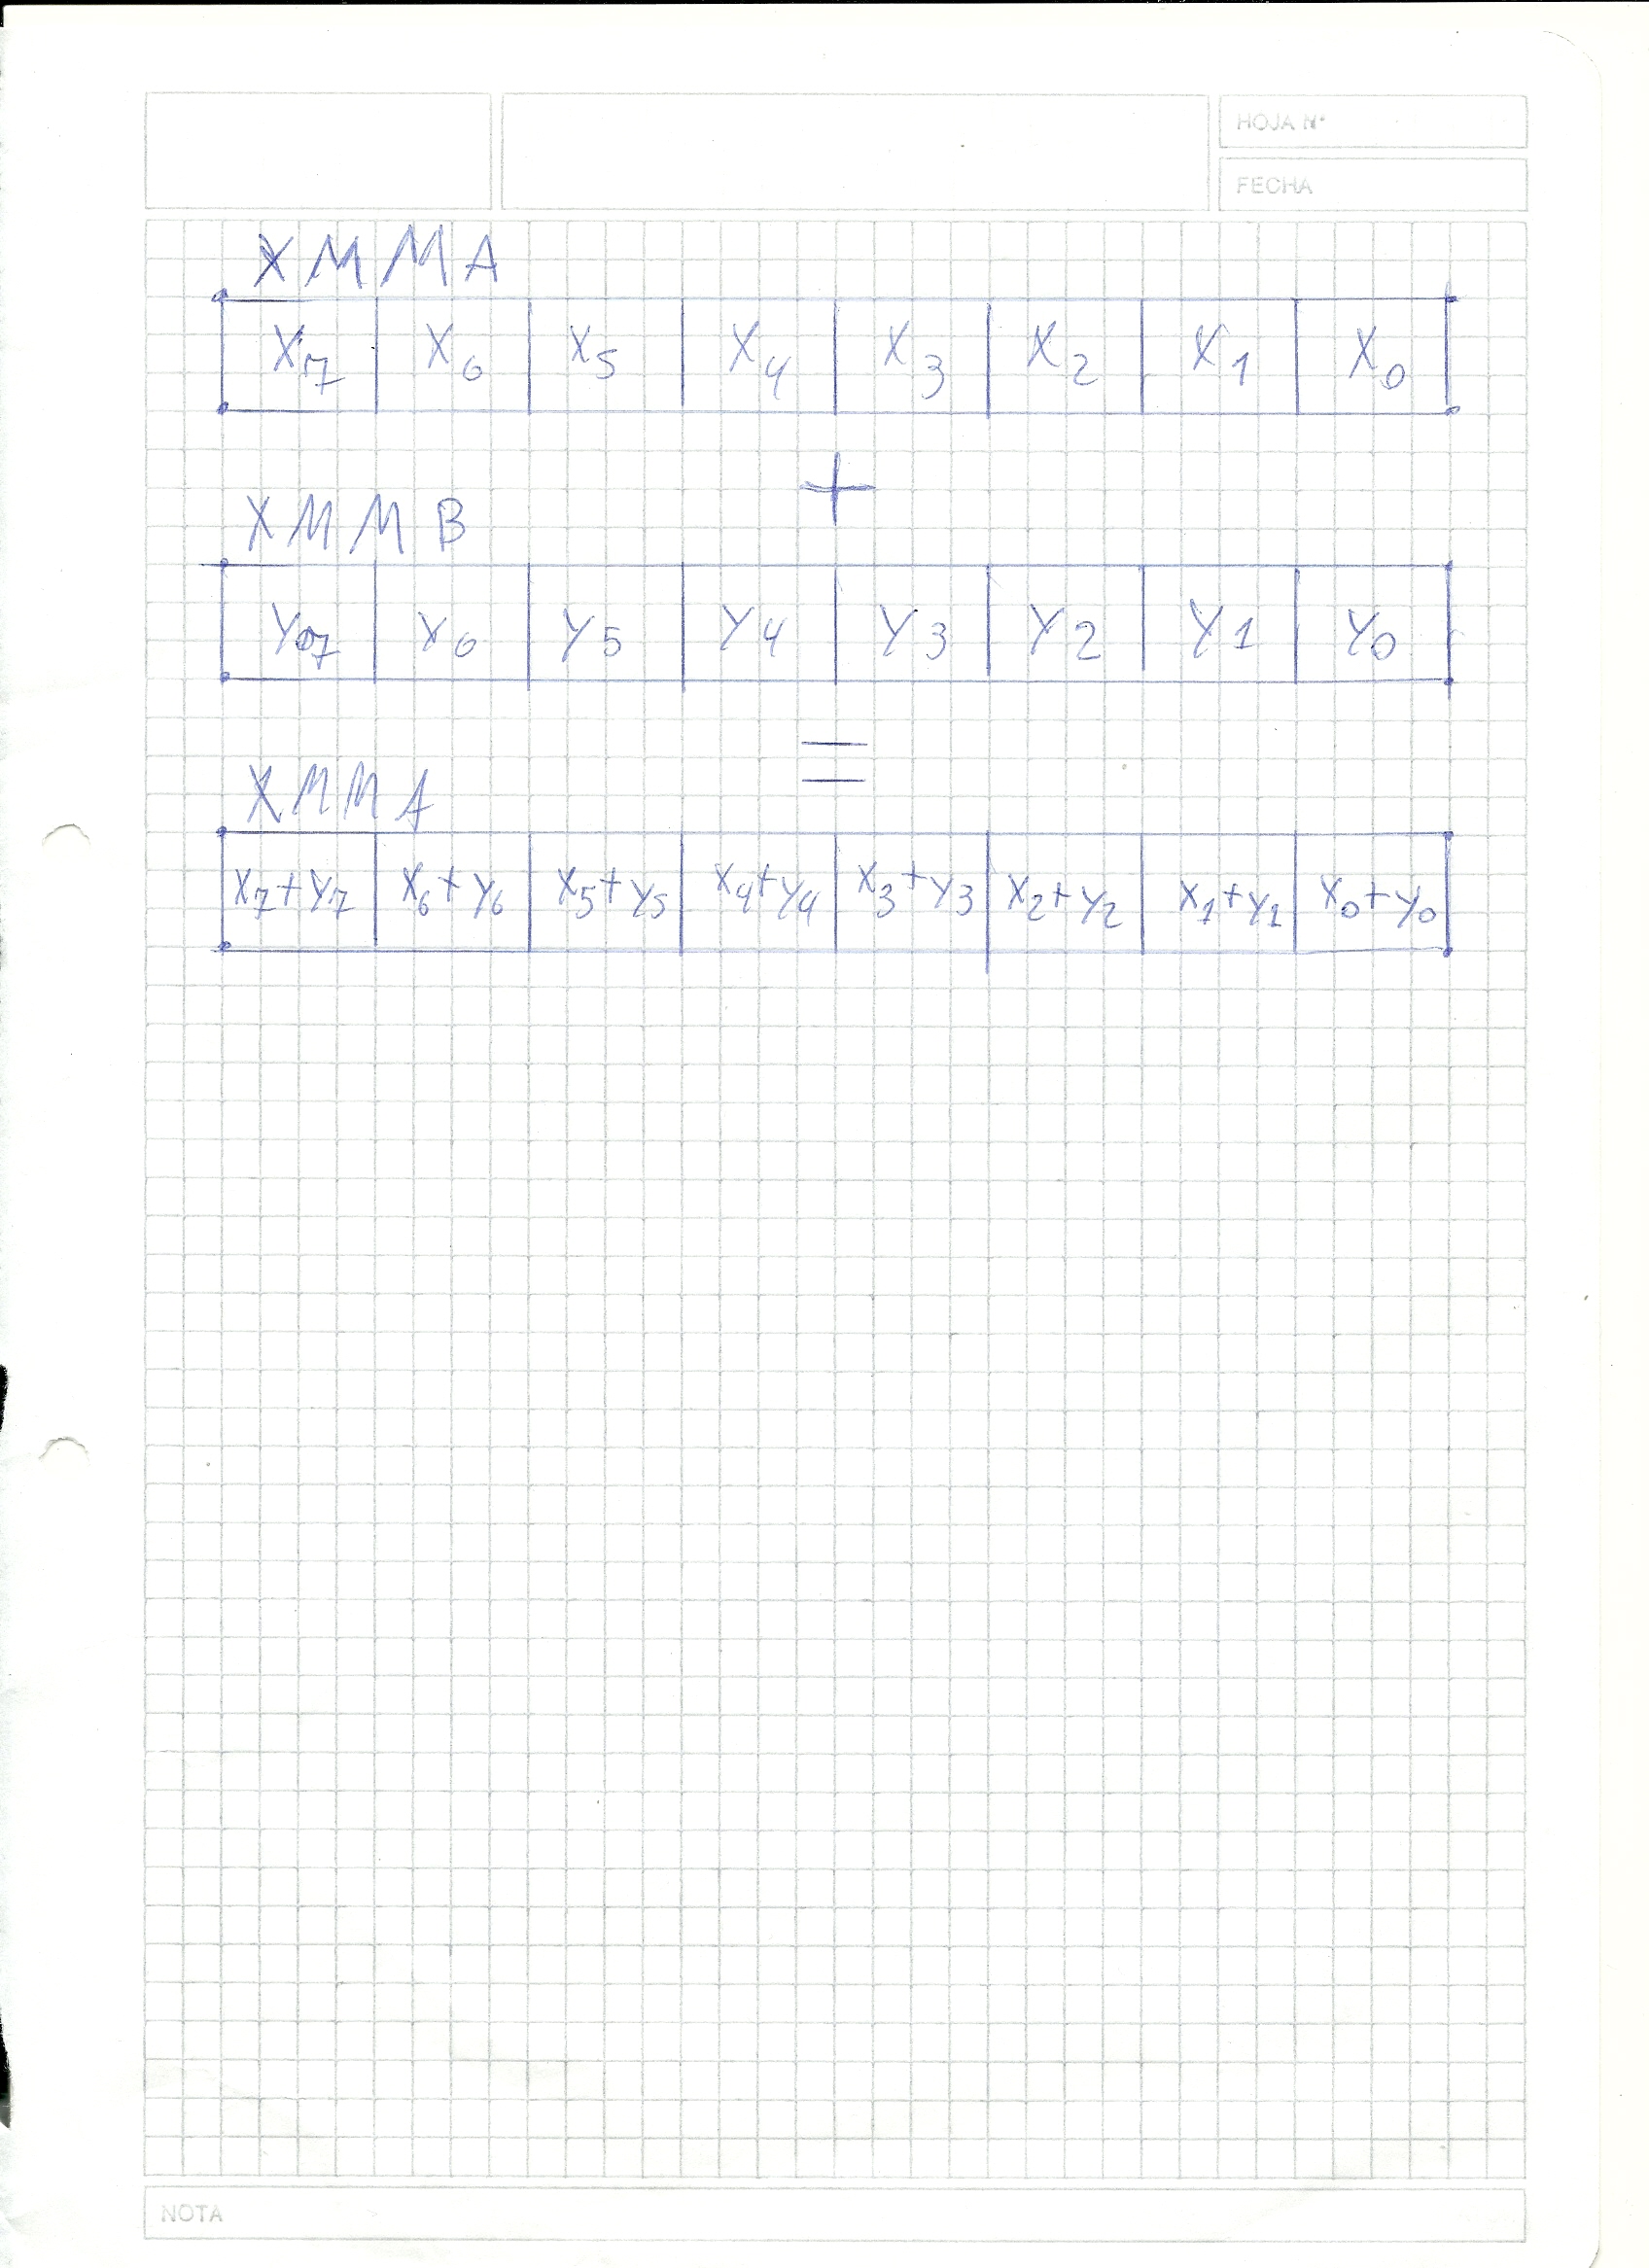 HOJA Nº
FECHA
XMMA
X7 X6 X5 X4 X3 X2 X1 X0
+
XMMB
Y07 Y6 Y5 Y4 Y3 Y2 Y1 Y0
=
XMMA
X7+Y7 X6+Y6 X5+Y5 X4+Y4 X3+Y3 X2+Y2 X1+Y1 X0+Y0
NOTA